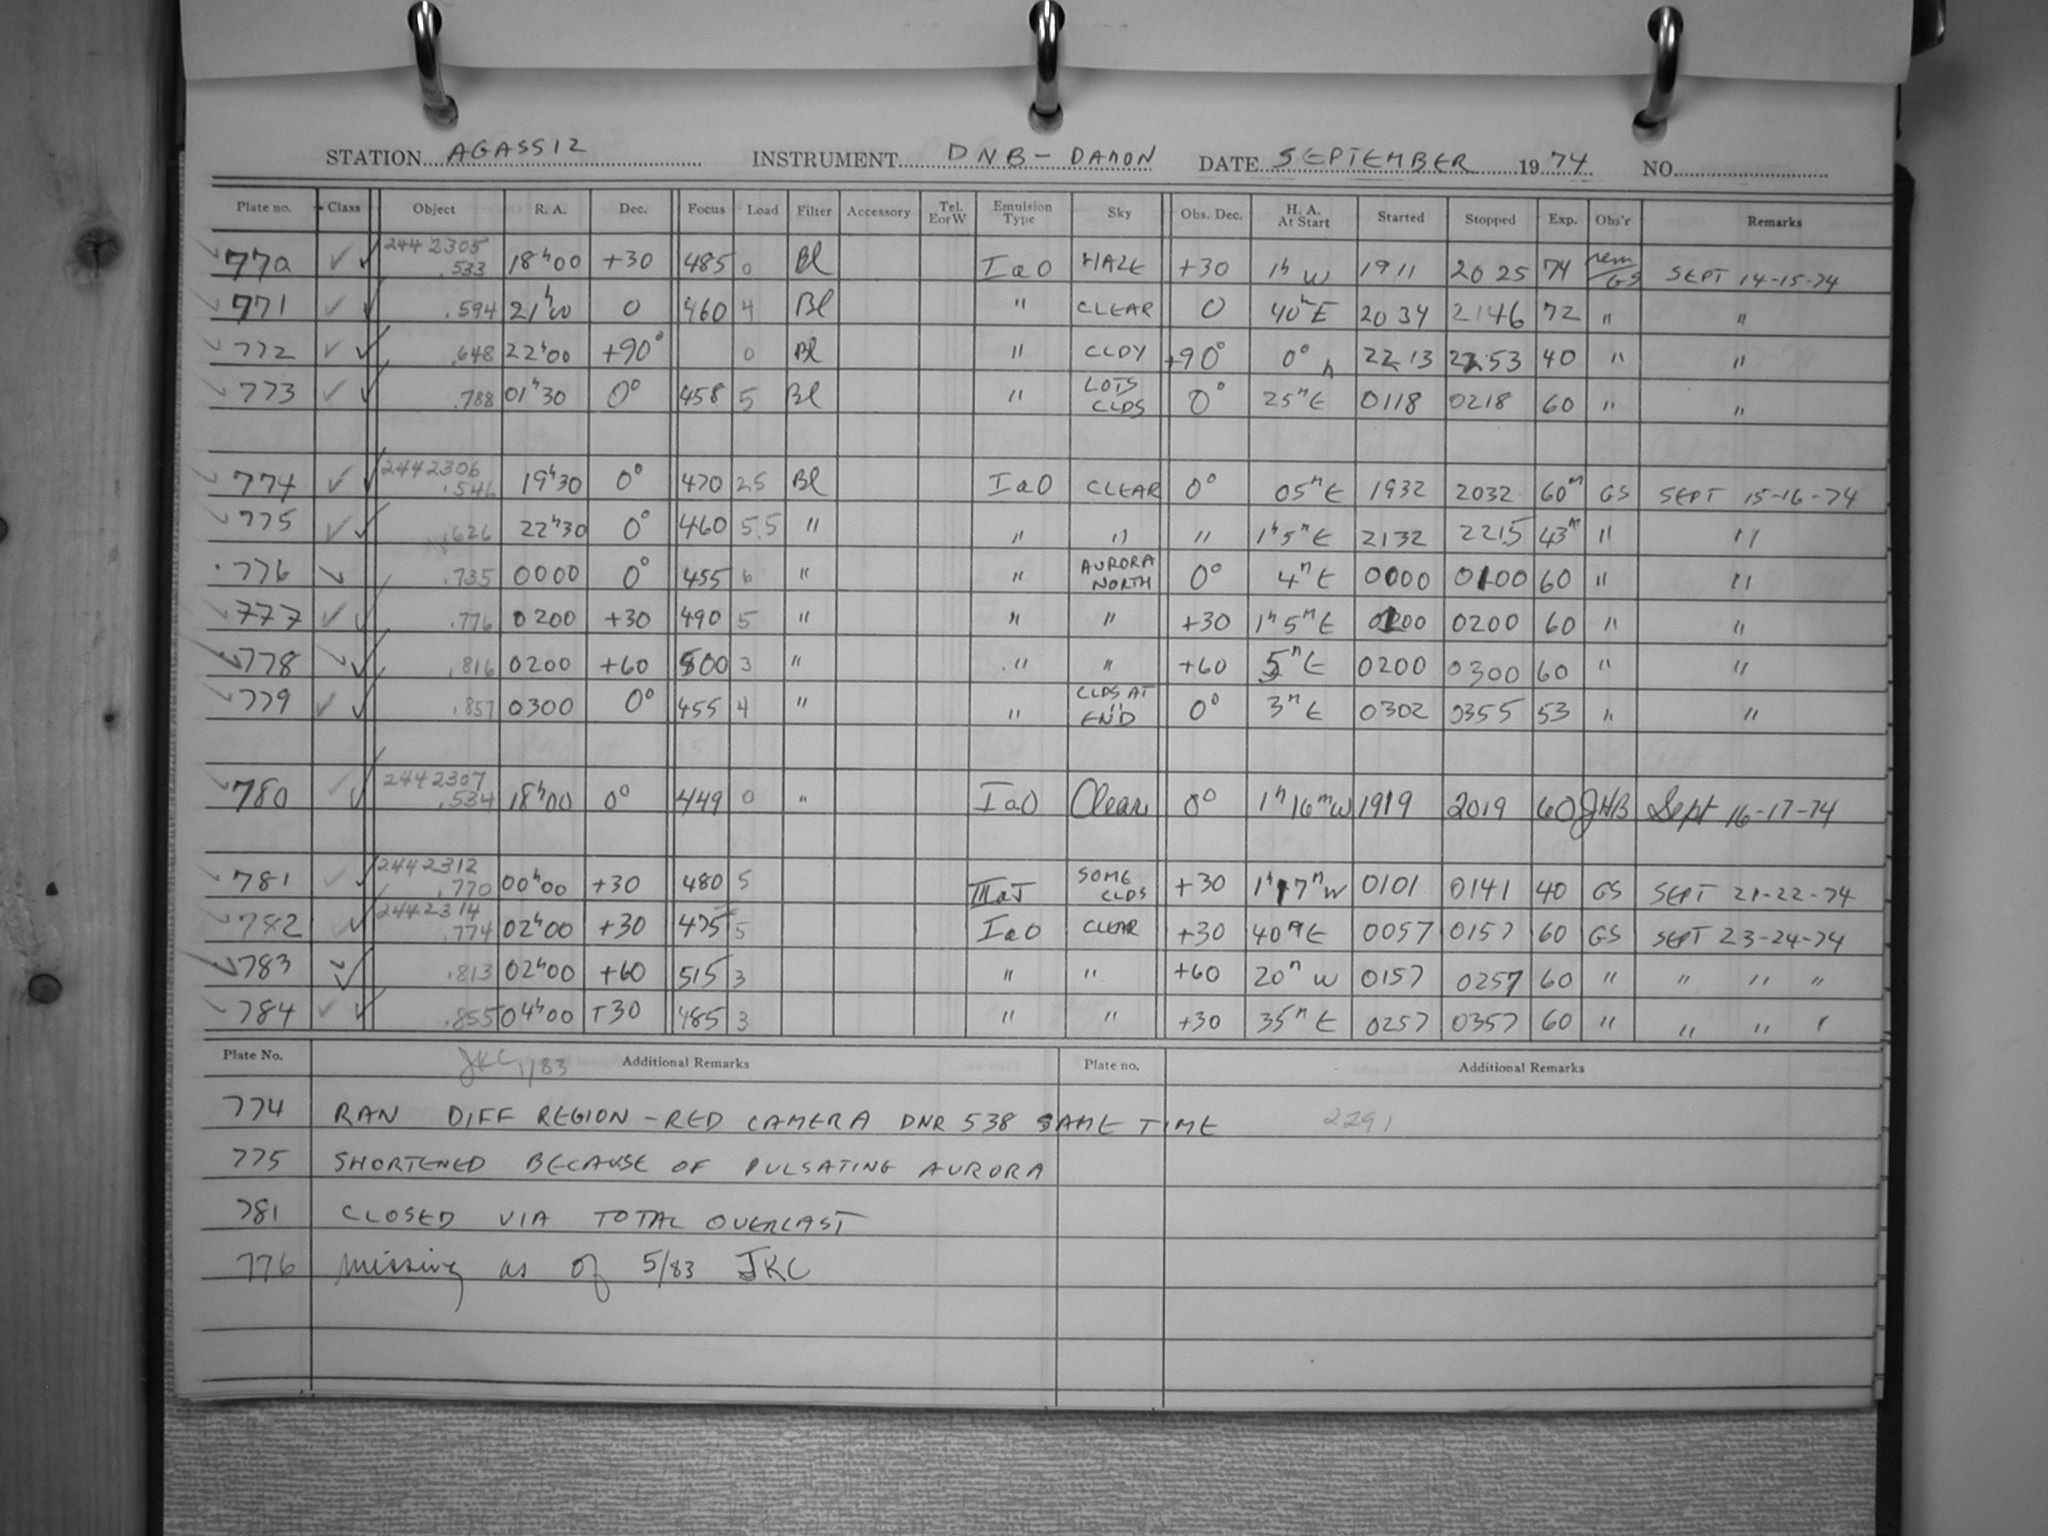 STATION AGASSIZ INSTRUMENT DNB - DAMON DATE SEPTEMBER 1974 NO.
Plate no. Class Object R. A. Dec. Focus Load Filter Accessory Tel. E or W Emulsion Type Sky Obs. Dec. H. A. At Start Started Stopped Exp. Obs'r Remarks
770 ✓✓ 2442305 .533 18h00 +30 485 0 Bl IaO HAZE +30 1h W 1911 2025 74 GS SEPT 14-15-74
771 ✓✓ .594 21h00 0 460 4 Bl " CLEAR 0 40m E 2034 2146 72 " "
772 ✓✓ .648 22h00 +90° 0 Bl " CLDY +90° 0° h 2213 2253 40 " "
773 ✓✓ .788 01h30 0° 458 5 Bl " LOTS CLDS 0° 25m E 0118 0218 60 " "
774 ✓✓ 2442306 .546 19h30 0° 470 25 Bl IaO CLEAR 0° 05m E 1932 2032 60m GS SEPT 15-16-74
775 ✓✓ .626 22h30 0° 460 5.5 " " " " 1h5m E 2132 2215 43m " "
776 ✓ .735 0000 0° 455 6 " " AURORA NORTH 0° 4m E 0000 0100 60 " "
777 ✓✓ .776 0200 +30 490 5 " " " +30 1h5m E 0100 0200 60 " "
778 ✓✓ .816 0200 +60 500 3 " " " +60 5m E 0200 0300 60 " "
779 ✓✓ .857 0300 0° 455 4 " " CLDS AT END 0° 3m E 0302 0355 53 " "
780 ✓✓ 2442307 .534 18h00 0° 449 0 " IaO Clear 0° 1h16m W 1919 2019 60 JHB Sept 16-17-74
781 ✓✓ 2442312 .770 00h00 +30 480 5 IIIaJ SOME CLDS +30 1h17m W 0101 0141 40 GS SEPT 21-22-74
782 ✓✓ 2442314 .774 02h00 +30 475 5 IaO CLEAR +30 40m E 0057 0157 60 GS SEPT 23-24-74
783 ✓✓ .813 02h00 +60 515 3 " " +60 20m W 0157 0257 60 " " " "
784 ✓✓ .855 04h00 +30 485 3 " " +30 35m E 0257 0357 60 " " " "
Plate No. JKC 1/83 Additional Remarks Plate no. Additional Remarks
774 RAN DIFF REGION - RED CAMERA DNR 538 SAME TIME 2291
775 SHORTENED BECAUSE OF PULSATING AURORA
781 CLOSED VIA TOTAL OVERCAST
776 missing as of 5/83 JKC